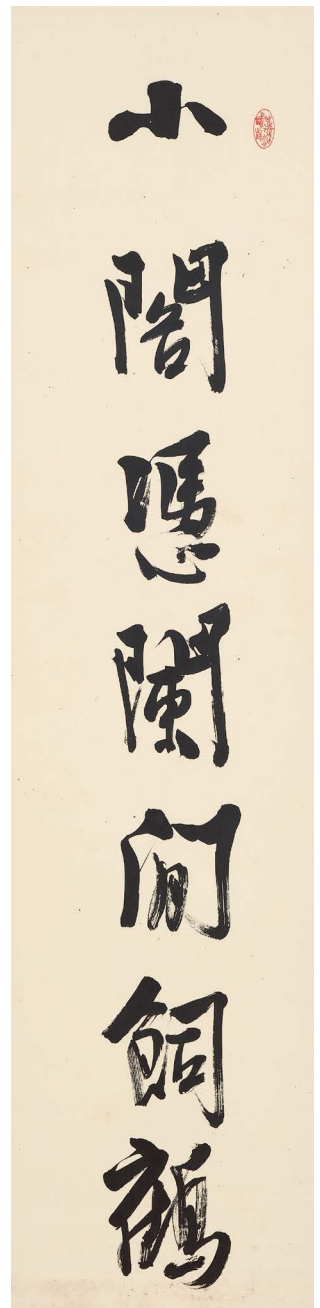 小閣憑闌閒飼鶴